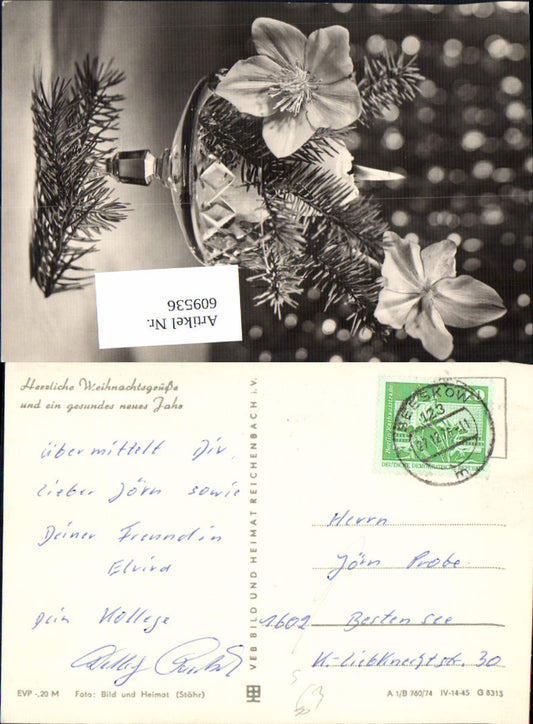 Artikel Nr.
609536
Herzliche Weihnachtsgrüße
und ein gesundes neues Jahr
übermittelt Dir,
lieber Jörn sowie
Deiner Freundin
Elvira
Dein Kollege
BEESKOW
DEUTSCHE DEMOKRATISCHE
Herrn
Jörn Probe
1602 Bestensee
K.-Liebknechtstr. 30
VEB BILD UND HEIMAT REICHENBACH i. V.
EVP -.20 M Foto: Bild und Heimat (Stöhr)
A 1/B 760/74 IV-14-45 G 8315